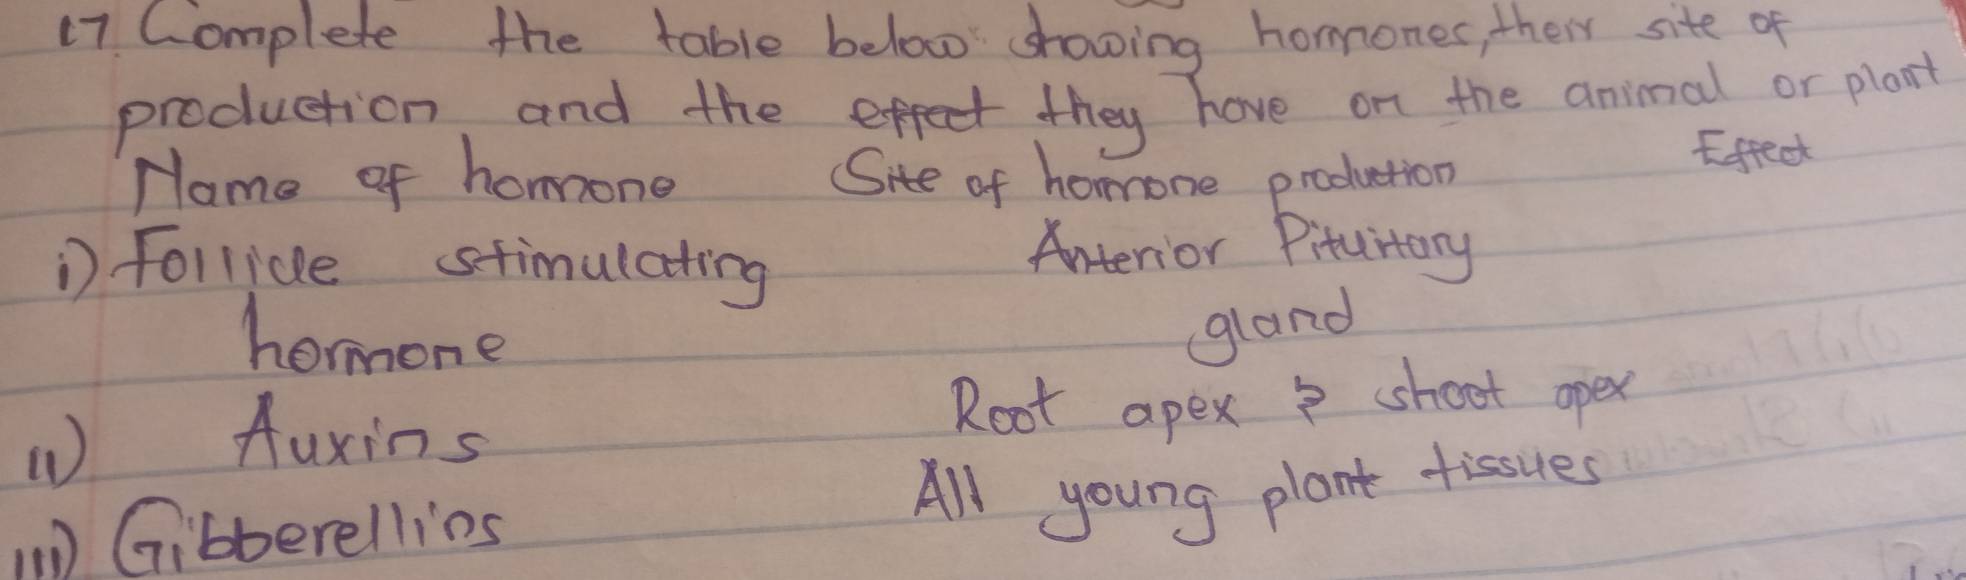 17. Complete the table below showing hormones, their site of
production and the effect they have on the animal or plant
Name of hormone Site of hormone production Effect
i) Follicle stimulating Anterior Pituitary
hormone gland
ii) Auxins Root apex & shoot apex
iii) Gibberellins All young plant tissues